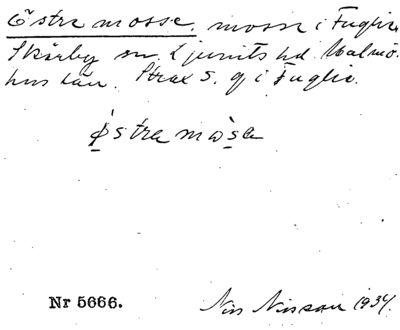 Östra mosse, mosse i Fuglie,
Skårby sn. Ljunits hd. Malmö-
hus län. Strax S. of i Fuglie.
östra mòsa
Nr 5666.
Nils Nilsson 1934.